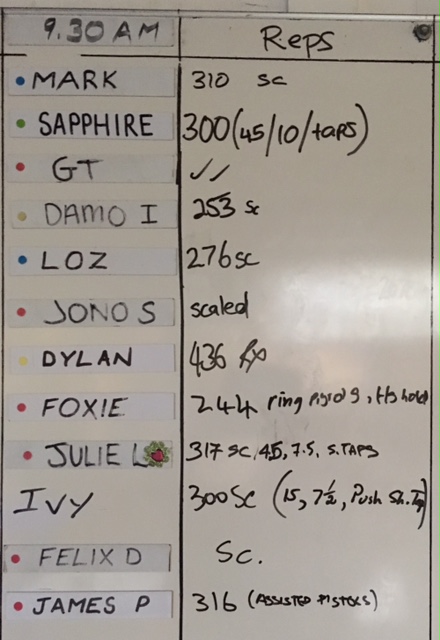 9.30 AM Reps
MARK 310 sc
SAPPHIRE 300 (45/10/taps)
GT ✓✓
DAMO I 253 sc
LOZ 276 sc
JONO S scaled
DYLAN 436 Rx
FOXIE 244 ring
JULIE L 317 SC, 45, 7.5, S.TAPS
IVY 300 Sc (15, 7½, Push Sh.
FELIX D Sc.
JAMES P 316 (ASSISTED PISTOLS)